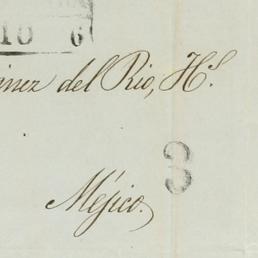 10 6
inez del Rio, H.s
3
Méjico.